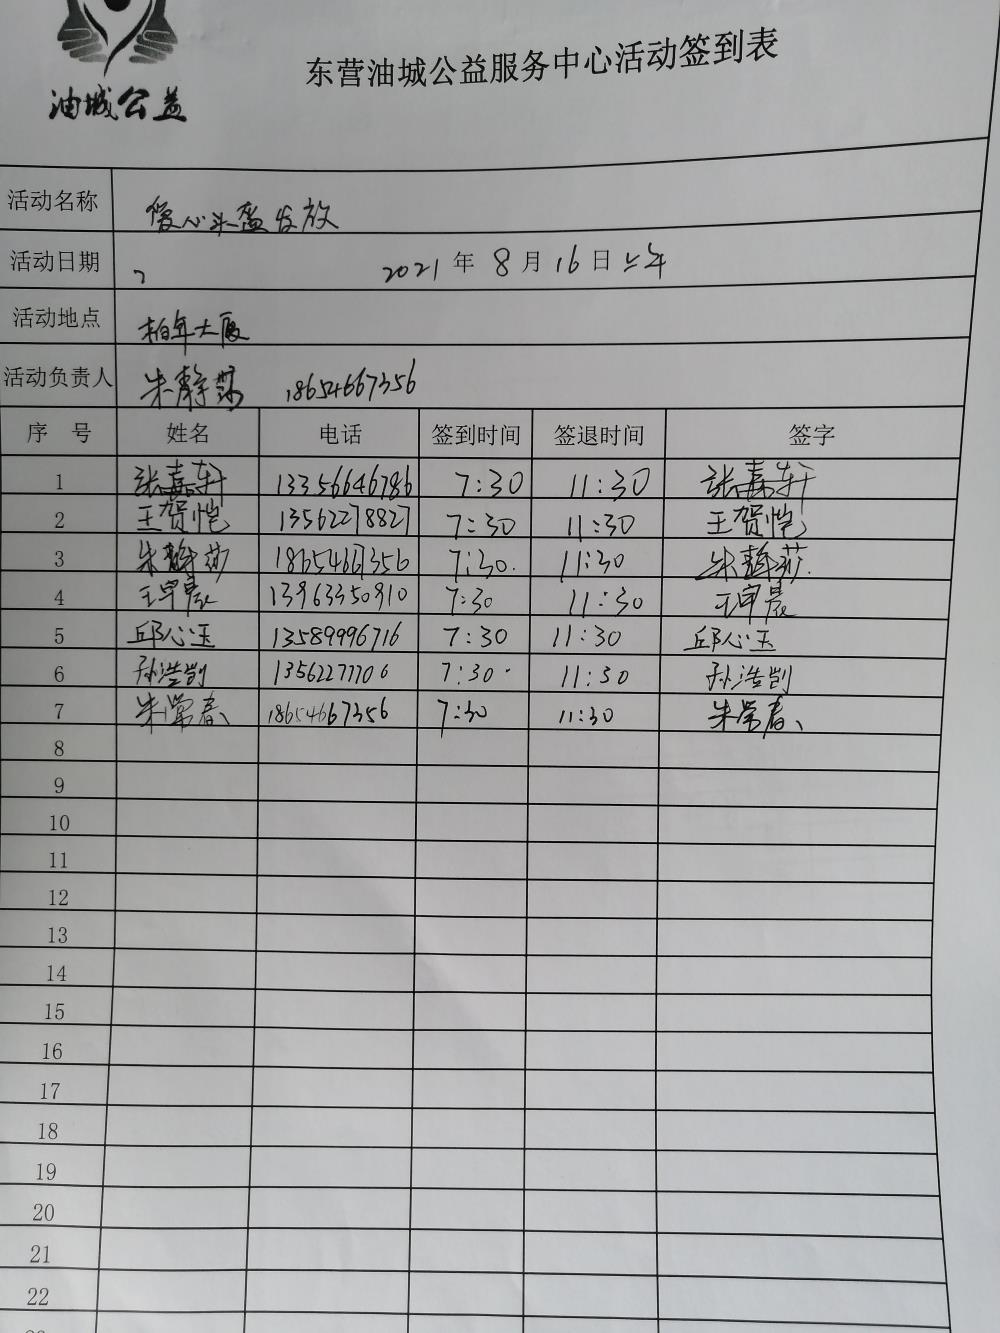 油城公益
东营油城公益服务中心活动签到表
活动名称 爱心头盔发放
活动日期 2021年8月16日上午
活动地点 柏年大厦
活动负责人 朱静莎 18654667356
序号 姓名 电话 签到时间 签退时间 签字
1 张嘉轩 13356646786 7:30 11:30 张嘉轩
2 王贺恺 13562278827 7:30 11:30 王贺恺
3 朱静莎 18654667356 7:30. 11:30 朱静莎.
4 王宇晨 13963350910 7:30 11:30 王宇晨
5 邱心玉 13589996716 7:30 11:30 邱心玉
6 孙浩凯 13562277706 7:30 11:30 孙浩凯
7 朱常春 18654667356 7:30 11:30 朱常春
8
9
10
11
12
13
14
15
16
17
18
19
20
21
22